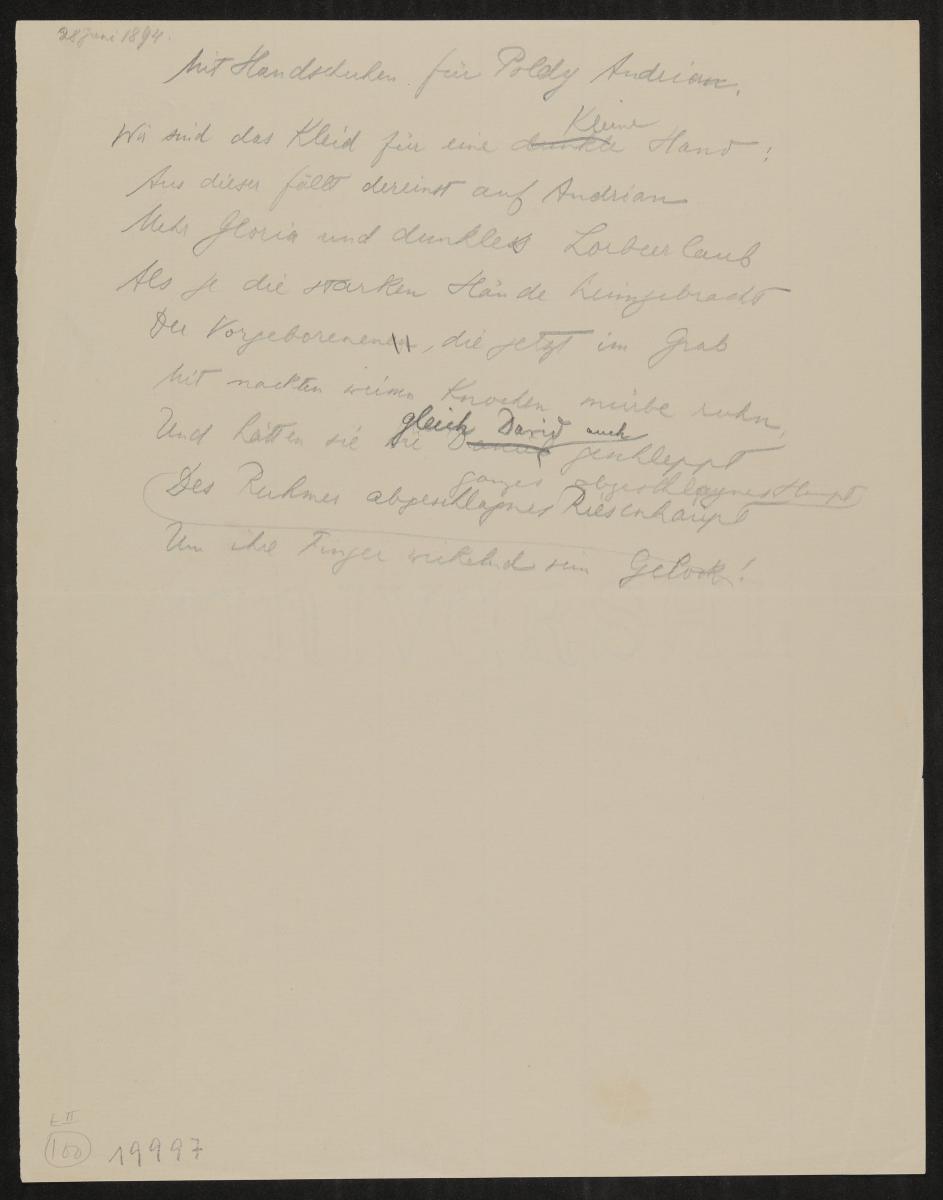 28 Juni 1894.
Mit Handschuhen für Poldy Andrian.
Kleine
Wir sind das Kleid für eine dunkle Hand:
Aus dieser fällt dereinst auf Andrian
Mehr Gloria und dunkles Lorbeerlaub
Als je die starken Hände heimgebracht
Der Vorgeborenen, die jetzt im Grab
Mit nackten weissen Knochen mürbe ruhn,
gleich David auch
Und hätten sie wie geschleppt
ganzes abgeschlagnes Haupt
Des Ruhmes abgeschlagnes Riesenhaupt
Um ihre Finger wickelnd sein Gelock!
E II
100 19997